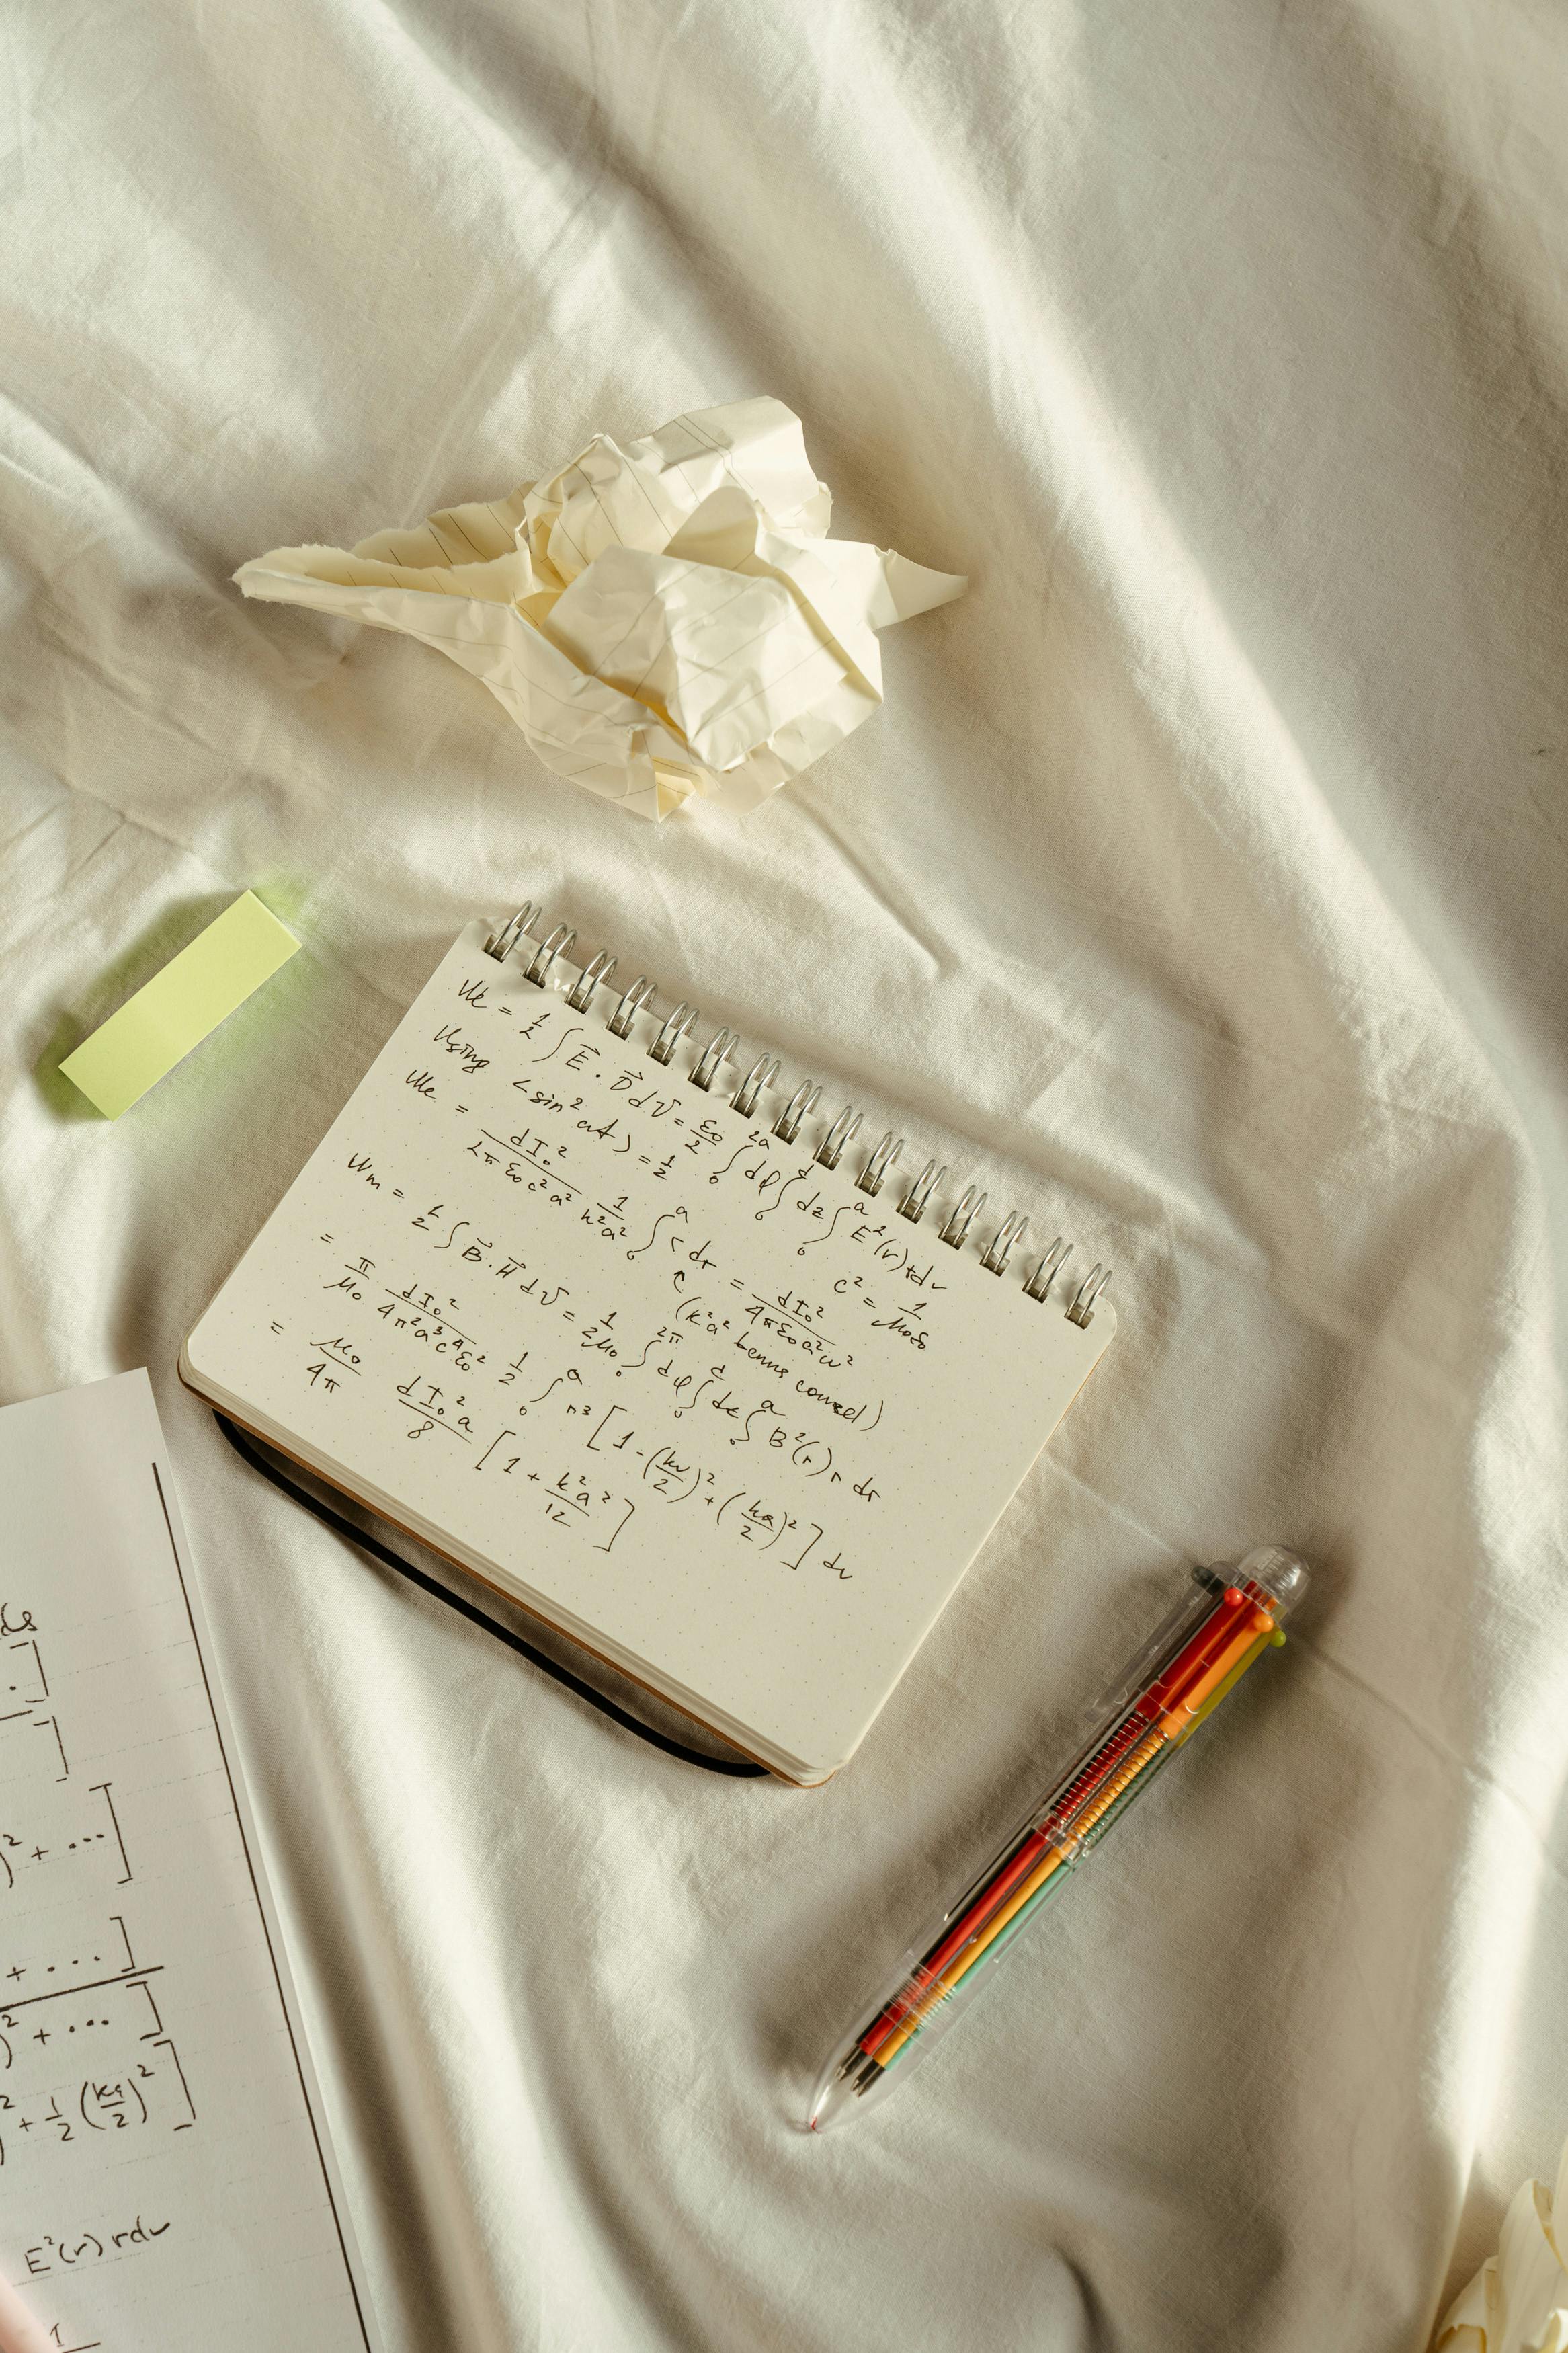 We = 1/2 ∫ E⃗ · D⃗ dV = ε₀/2 ∫₀^2a dφ ∫₀^d dz ∫₀^a E²(r) rdr
Using <sin² ωt> = 1/2 c² = 1/μ₀ε₀
We = dI₀²/2πε₀c²a² 1/k²a² ∫₀^a r dr = dI₀²/4πε₀a²ω²
(k²a² terms )
Wm = 1/2 ∫ B⃗ · H⃗ dV = 1/2μ₀ ∫₀^2π dφ ∫₀^d dz ∫₀^a B²(r) r dr
= π/μ₀ dI₀²/4π²a³c⁴ε₀² 1/2 ∫₀^a r³ [1 - (kr/2)² + (ka/2)²] dr
= μ₀/4π dI₀²a/8 [1 + k²a²/12]
.]
]
)² + ...]
+ ...]
)² + ...]
² + 1/2 (ka/2)²]
E²(r) rdr
1